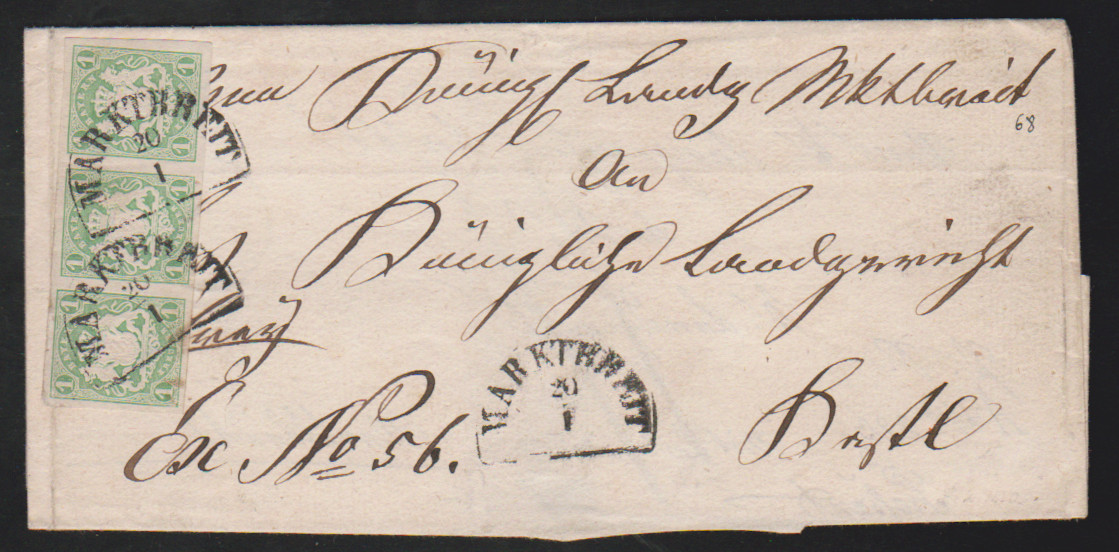 Vom Königl Landg Mktbreit
68
An
Königliche Landgericht
Ex No 56.
MARKTBREIT
20
1
MARKTBREIT
20
1
MARKTBREIT
20
1
1 1
1 1
1 1
1 1
1 1
1 1